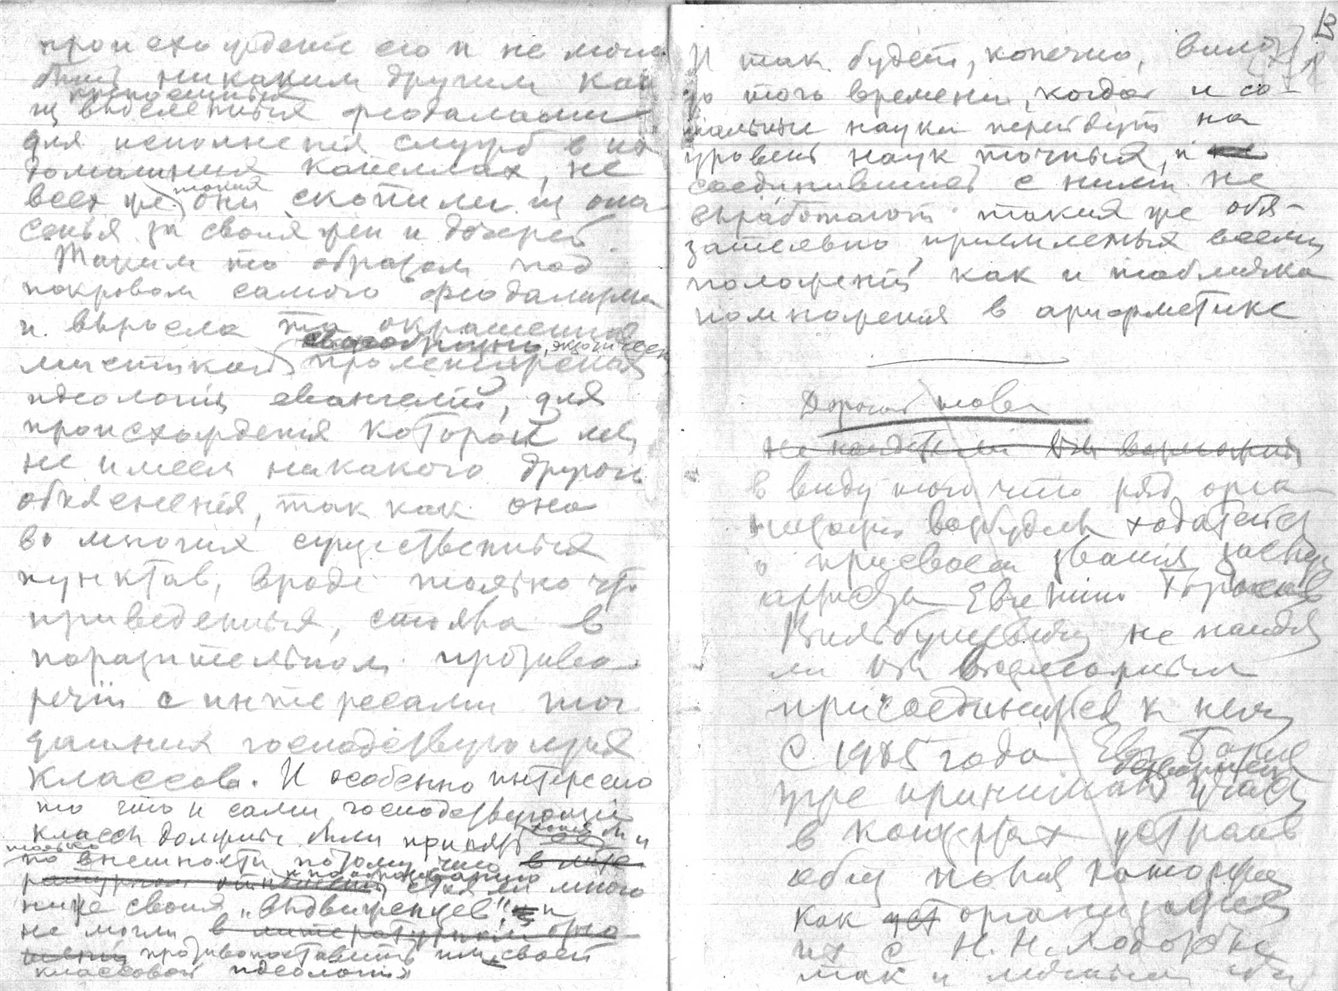 происхождение его и не могло
быть никаким другим как
крепостныя
из выделенных феодалами
для исполнения служб в их
домашних капеллах, не
всех же они такия скопили из опа
сенья за своих жен и дочерей.
Таким то образом под
покровом самого феодализма
и выросла та окрашенная
мистикой пролетарская
идеология евангелий, для
происхождения которой мы
не имеем никакого другого
объяснения, так как она
во многих существенных
пунктах, вроде только что
приведенных, стояла в
поразительном противо
речии с интересами тог
дашних господствующих
классов. И особенно интересно
то что и сами господствующие
классы должны были принять
только
по внешности потому что
стояли много
ниже своих „выдвиженцев" и
не могли
противопоставить им своей
классовой идеологии
В
И так будет, конечно, вплоть
до того времени, когда и со-
циальные науки перейдут на
уровень наук точных, и
соединившись с ними не
выработают таких же обя-
зательно приемлемых всеми
положений как и табличка
помножения в арифметике
Дорогой
не найдете ли Вы возможным
в виду того что ряд орга
низаций возбудил ходатайство
о присвоении звания заслуж
артиста Евгению
Вильбушевичу не найдё
ли Вы возможным
присоединиться к нему
С 1905 года Евг Борис
уже принимал участ
в концертах устраив
как организацией
их с Н. Н.
так и